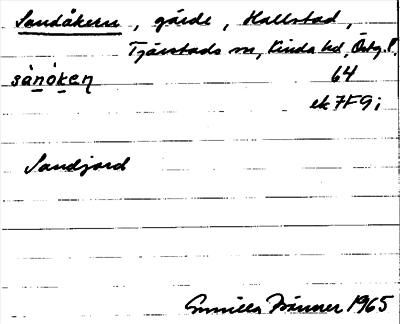 Sandåkern, gärde, Hallstad,
Tjärstads sn, Kinda hd, Östg.l.
sànòkeɳ 64
ek 7F9i
Sandjord
Gunilla 1965